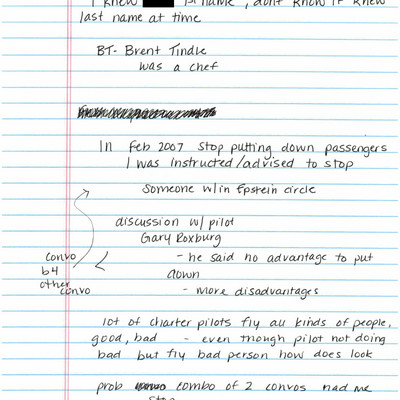 I knew 1st name, don't know if knew
last name at time
BT- Brent Tindle
was a chef
In Feb 2007 stop putting down passengers
I was instructed/advised to stop
Someone w/in Epstein circle
discussion w/ pilot
Gary Roxburg
convo - he said no advantage to put
b4 down
other
convo - more disadvantages
lot of charter pilots fly all kinds of people,
good, bad - even though pilot not doing
bad but fly bad person how does look
prob combo of 2 convos had me
stop